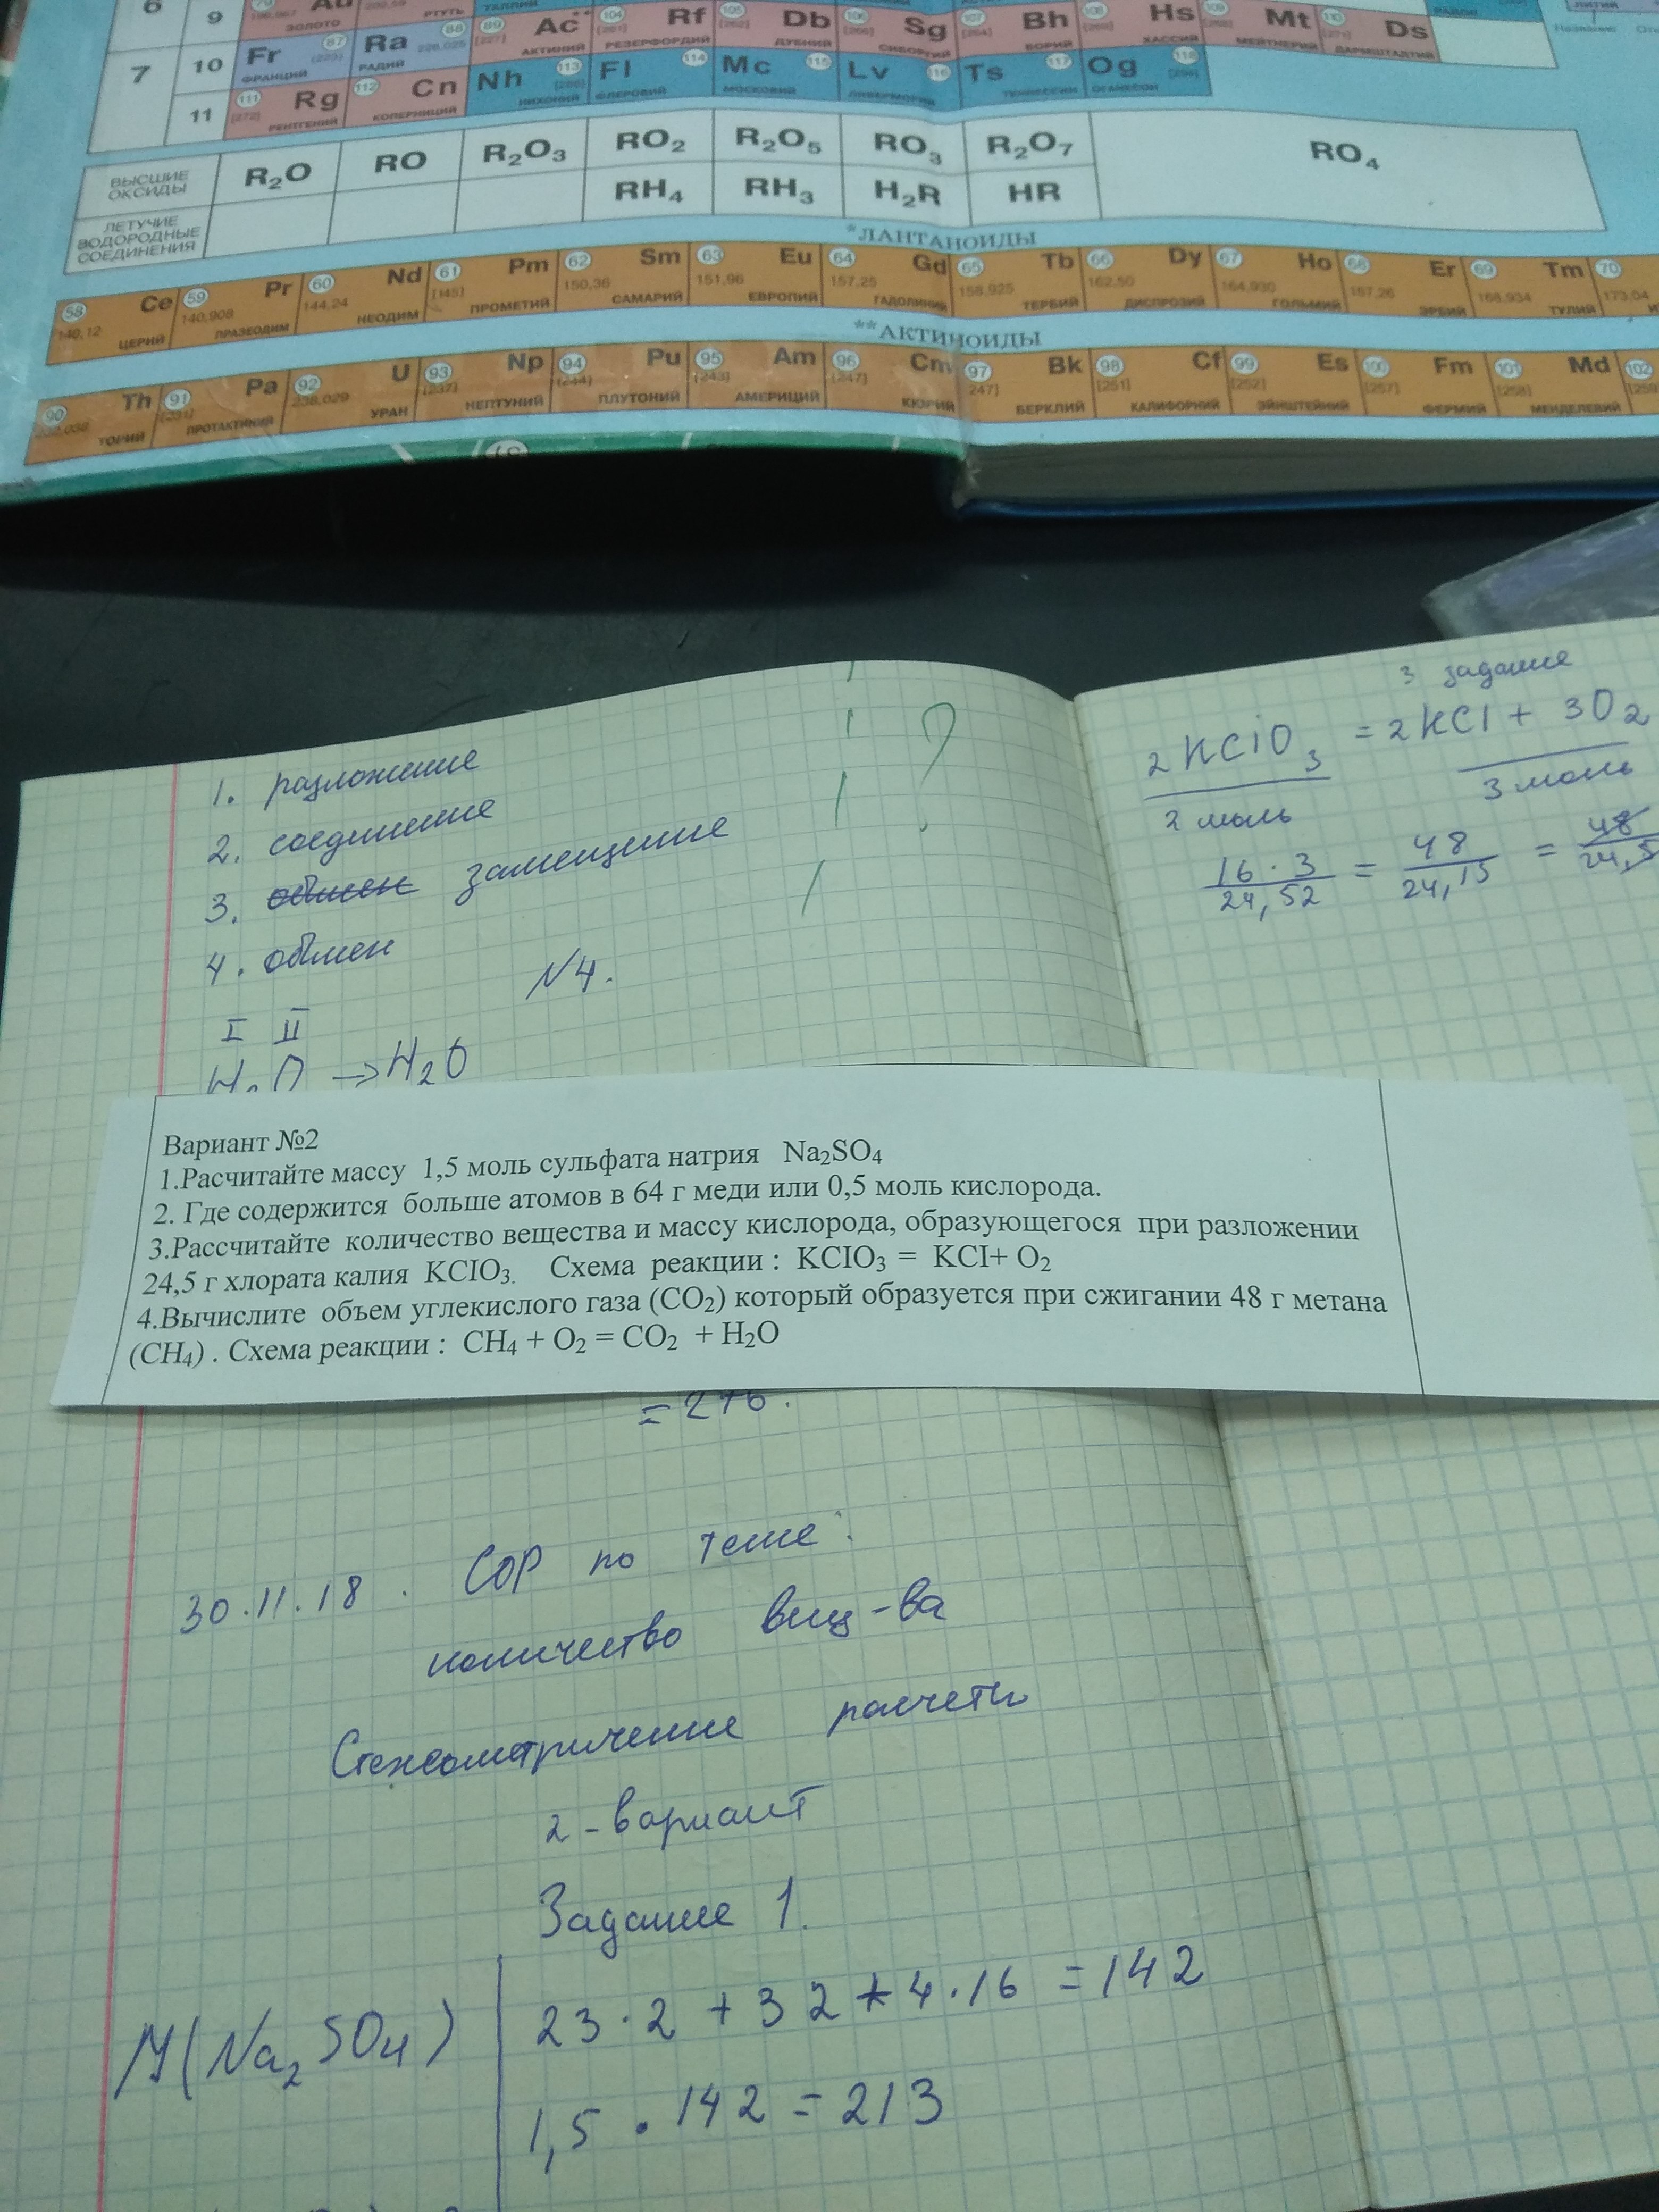 6 9 79 Au 196,967 ЗОЛОТО РТУТЬ ТАЛЛИЙ
7 10 Fr 87 [223] ФРАНЦИЙ Ra 88 226,025 РАДИЙ 89 Ac** [227] АКТИНИЙ 104 Rf [261] РЕЗЕРФОРДИЙ 105 Db [262] ДУБНИЙ 106 Sg СИБОРГИЙ 107 Bh [264] БОРИЙ 108 Hs ХАССИЙ 109 Mt МЕЙТНЕРИЙ 110 Ds [271] ДАРМШТАДТИЙ
11 111 Rg [272] РЕНТГЕНИЙ 112 Cn КОПЕРНИЦИЙ Nh 113 НИХОНИЙ Fl 114 ФЛЕРОВИЙ Mc 115 МОСКОВИЙ Lv 116 ЛИВЕРМОРИЙ Ts 117 ТЕННЕССИН Og 118 [294] ОГАНЕСОН
ВЫСШИЕ ОКСИДЫ R₂O RO R₂O₃ RO₂ R₂O₅ RO₃ R₂O₇ RO₄
ЛЕТУЧИЕ ВОДОРОДНЫЕ СОЕДИНЕНИЯ RH₄ RH₃ H₂R HR
*ЛАНТАНОИДЫ
58 Ce 140,12 ЦЕРИЙ 59 Pr 140,908 ПРАЗЕОДИМ 60 Nd 144,24 НЕОДИМ 61 Pm [145] ПРОМЕТИЙ 62 Sm 150,36 САМАРИЙ 63 Eu 151,96 ЕВРОПИЙ 64 Gd 157,25 ГАДОЛИНИЙ 65 Tb 158,925 ТЕРБИЙ 66 Dy 162,50 ДИСПРОЗИЙ 67 Ho 164,930 ГОЛЬМИЙ 68 Er 167,26 ЭРБИЙ 69 Tm 168,934 ТУЛИЙ 70 173,04
**АКТИНОИДЫ
90 Th 232,038 ТОРИЙ 91 Pa [231] ПРОТАКТИНИЙ 92 U 238,029 УРАН 93 Np [237] НЕПТУНИЙ 94 Pu [244] ПЛУТОНИЙ 95 Am [243] АМЕРИЦИЙ 96 Cm [247] КЮРИЙ 97 Bk 247] БЕРКЛИЙ 98 Cf [251] КАЛИФОРНИЙ 99 Es [252] ЭЙНШТЕЙНИЙ 100 Fm [257] ФЕРМИЙ 101 Md [258] МЕНДЕЛЕВИЙ 102
1. разложение
2. соединение
3. обмен замещение
4. обмен
N4.
I II
H₂O → H₂O
3 задание
2KClO₃ = 2KCl + 3O₂
2 моль 3 моль
16 · 3 / 24,52 = 48 / 24,15 = 48 / 24,5
Вариант №2
1.Расчитайте массу 1,5 моль сульфата натрия Na₂SO₄
2. Где содержится больше атомов в 64 г меди или 0,5 моль кислорода.
3.Рассчитайте количество вещества и массу кислорода, образующегося при разложении
24,5 г хлората калия KCIO₃. Схема реакции : KCIO₃ = KCI+ O₂
4.Вычислите объем углекислого газа (CO₂) который образуется при сжигании 48 г метана
(CH₄) . Схема реакции : CH₄ + O₂ = CO₂ + H₂O
= 276.
30.11.18. СОР по теме:
количество вещ-ва
Стехеометричение расчеты
2-вариант
Задание 1.
M(Na₂SO₄) 23·2 + 32 + 4·16 = 142
1,5 · 142 = 213